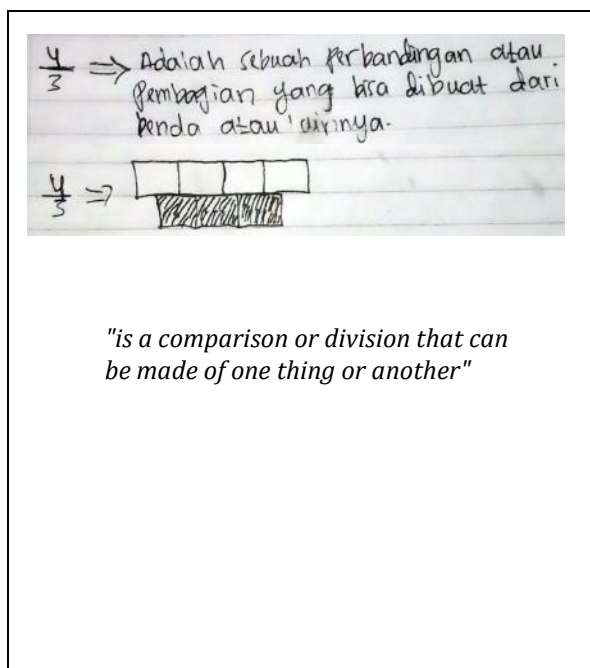 4/3 ⇒ Adalah sebuah Perbandingan atau
Pembagian yang bisa dibuat dari
benda atau
4/3 ⇒
"is a comparison or division that can
be made of one thing or another"